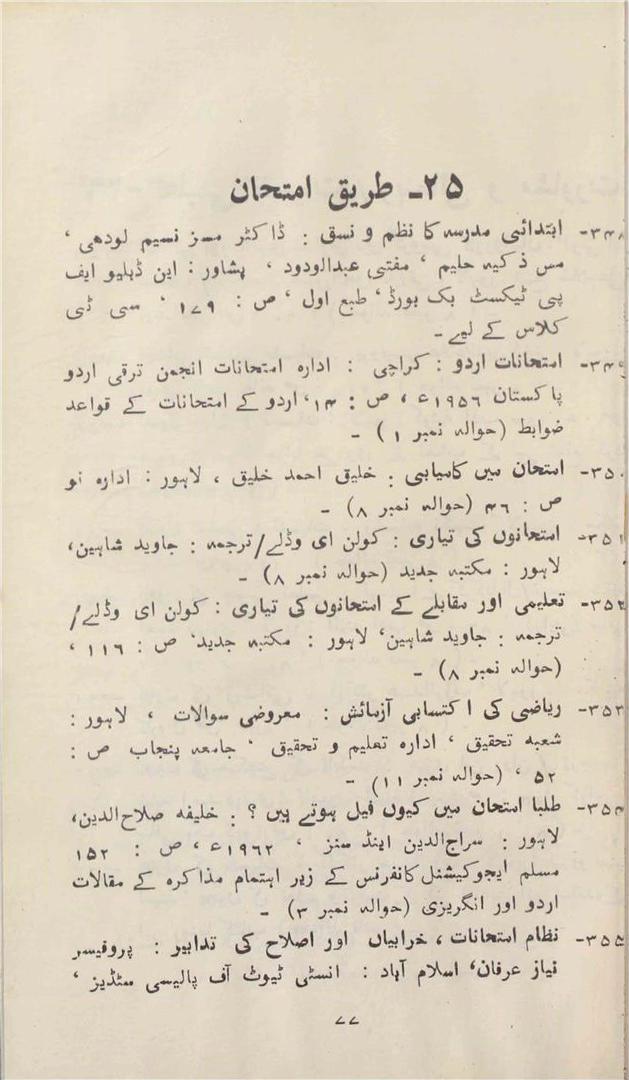 ۲۵۔ طریق امتحان
۳۴۸۔ ابتدائی مدرسہ کا نظم و نسق : ڈاکٹر مسز نسیم لودھی ‘
مس ذکیہ حلیم ‘ مفتی عبدالودود ، پشاور : این ڈبلیو ایف
پی ٹیکسٹ بک بورڈ ‘ طبع اول ‘ ص : ۱۷۹ ‘ سی ٹی
کلاس کے لیے ۔
۳۴۹۔ امتحانات اردو : کراچی : ادارہ امتحانات انجمن ترقی اردو
پاکستان ۱۹۵۶ء ، ص : ۱۴، اردو کے امتحانات کے قواعد
ضوابط (حوالہ نمبر ۱) ۔
۳۵۰۔ امتحان میں کامیابی : خلیق احمد خلیق ، لاہور : ادارہ نو
ص : ۴۶ (حوالہ نمبر ۸) ۔
۳۵۱۔ امتحانوں کی تیاری : کولن ای وڈلے/ترجمہ : جاوید شاہین،
لاہور : مکتبہ جدید (حوالہ نمبر ۸) ۔
۳۵۲۔ تعلیمی اور مقابلے کے امتحانوں کی تیاری : کولن ای وڈلے/
ترجمہ : جاوید شاہین‘ لاہور : مکتبہ جدید‘ ص : ۱۱۶ ‘
(حوالہ نمبر ۸) ۔
۳۵۳۔ ریاضی کی اکتسابی آزمائش : معروضی سوالات ، لاہور :
شعبہ تحقیق ‘ ادارہ تعلیم و تحقیق ‘ جامعہ پنجاب ص :
۵۲ ‘ (حوالہ نمبر ۱۱) ۔
۳۵۴۔ طلبا امتحان میں کیوں فیل ہوتے ہیں ؟ : خلیفہ صلاح الدین،
لاہور : سراج الدین اینڈ سنز ‘ ۱۹۶۲ء ، ص : ۱۵۲
مسلم ایجوکیشنل کانفرنس کے زیر اہتمام مذاکرہ کے مقالات
اردو اور انگریزی (حوالہ نمبر ۳) ۔
۳۵۵۔ نظام امتحانات ، خرابیاں اور اصلاح کی تدابیر : پروفیسر
نیاز عرفان‘ اسلام آباد : انسٹی ٹیوٹ آف پالیسی سٹڈیز ‘
۷۷